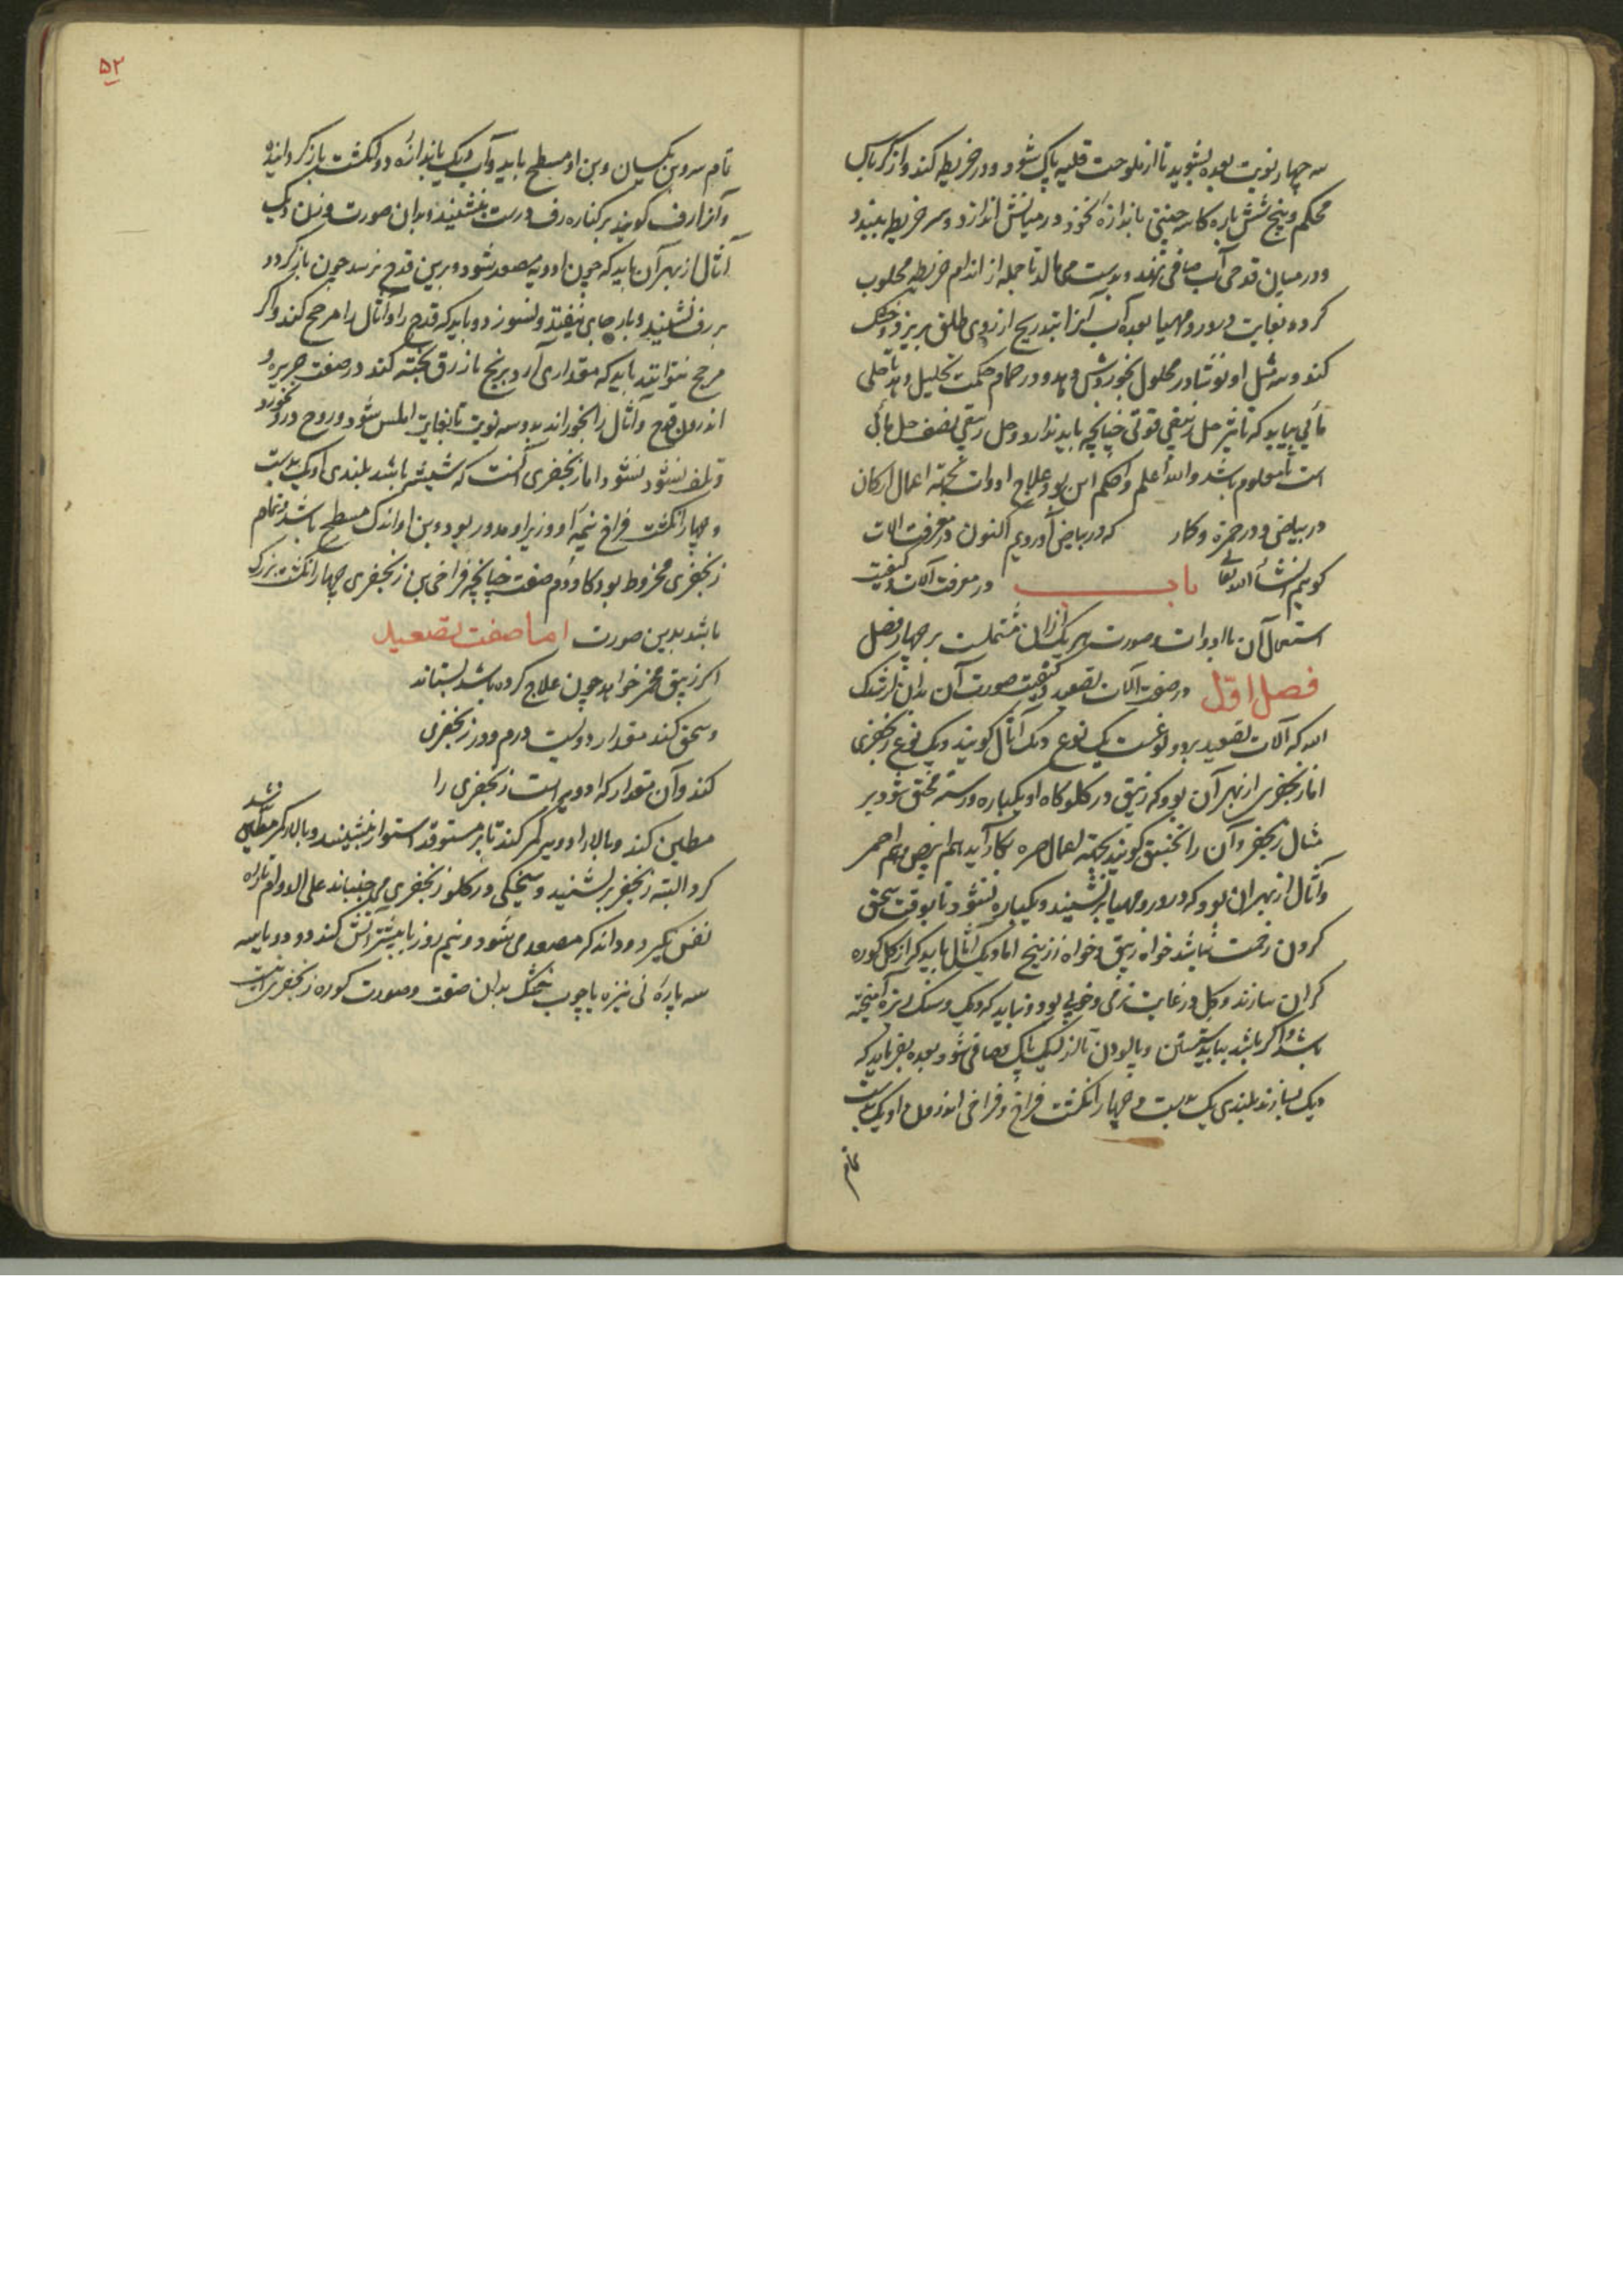 سه چهار نوبت بعده بشوید تا از ملوحت قلیه پاک شود و در خریطه کند و از کرباس
محکم و پنج شش پاره کاسه چینی باندازه نخود در میانش اندازد و سر خریطه ببندد
و در میان قدحی آب صافی نهند و بدست می مالد تا جمله از اندام خریطه محلوب
کردد بغایت درور و مهیا بعده آب آنرا بتدریج از روی طلق بریزد و خشک
کند و سه مثل او نوشادر محلول بخوردش دهد و در حمام حکمت تحلیل دهد تا حلی
مائی بیاید که تاثیر حل زیبقی قوتی چنانچه باید ندارد و حل زیبقی نصف حل مائی
است تا معلوم باشد والله اعلم واحکم این بود علاج ادوات بجهة اعمال ارکان
در بیاض و در حمرة و کار که در بیاض آوردیم اکنون در معرفت الات
کوییم انشأ الله تعالی باب در معرفت آلات و کیفیت
استعمال آن با ادوات و صورت هر یک ازان مشتملست بر چهار فصل
فصل اول در صفت آلات تصعید و کیفیت صورت آن بدان ارشدک
الله که آلات تصعید بر دو نوعست یک نوع دیک آثال کویند و یک نوع زنجفری
اما زنجفری از بهر آن بود که زیبق در کلوکاه او یکباره ورسته مختق شود بر
مثال زنجفر و آن را تخنیق کویند بجهة اعمال حمره بکار آید اهم ابیض و هم احمر
و آثال از بهر ان بود که درور و مهیا بر نشیند و یکباره نشود تا بوقت سحق
کردن زحمت نباشد خواه زیبق و خواه زرنیخ اما دیک آثال باید که از کل کوره
کران سازند و کل در غایت نرمی و خوبی بود و نباید که ریک و سنک ریزه آمیخته
باشد و اگر باشد بباید شستن و پالودن تا از ریک پاک و صافی شود بعده بفرماید که
دیک بسازند بلندی یک بدست و چهار انگشت فراخ و فراخی اندرون او یک بدست
تمام
۵۲
تام سر و بن یکسان و بن او مسطح باید و لب دیک باندازه دو انکشت باز کردانیده
و آنرا رف کویند بر کناره رف درست بنشینند و بدان صورت وزن دیک
آثال از بهر آن باید که چون ادویه مصعد شود و برین قدح برسد چون بازکردد
بر رف نشیند و بار جای نیفتد و نسوزد و باید که قدح را و آثال را مرحج کند و اگر
مرحج نتوانند باید که مقداری آرد برنج بازرق پخته کند در صفت حریره و
اندرون قدح و آثال را بخوراند بدو سه نوبت تا بغایت املس شود و روح درو بخورد
و تلف نشود نشود اما زنجفری آنست که شیشه باشد بلندی او یک بدست
و چهار انکشت فراخ نیمه او و زیر او مدور بود و بن او اندک مسطح باشد و تمام
زنجفری مخروط بود کاودم صفت چنانچه فراخی بن زنجفری چهار انکشت بزرک
باشد بدین صورت اما صفت تصعید
اکر زیبق محمر خواهد چون علاج کرده باشد بستاند
و سحق کند مقدار دویست درم و در زنجفری
کند و آن مقدار که ادویه است زنجفری را
مطین کند و بالا را دو سه کمر کند تا بر مستوقد استوار بنشیند و بالا کمر مطین نشد
کرد البته زنجفر بر نشنید و سیخکی در کلو زنجفری می جنباند علی الدوام تا راه
نفس نکیرد و داند که مصعد می شود و نیم روز یا بیشتر آتش کند دو دو یا سه
سه پاره نی نیزه یا چوب خشک بدان صفت و صورت کوره زنجفری اینست